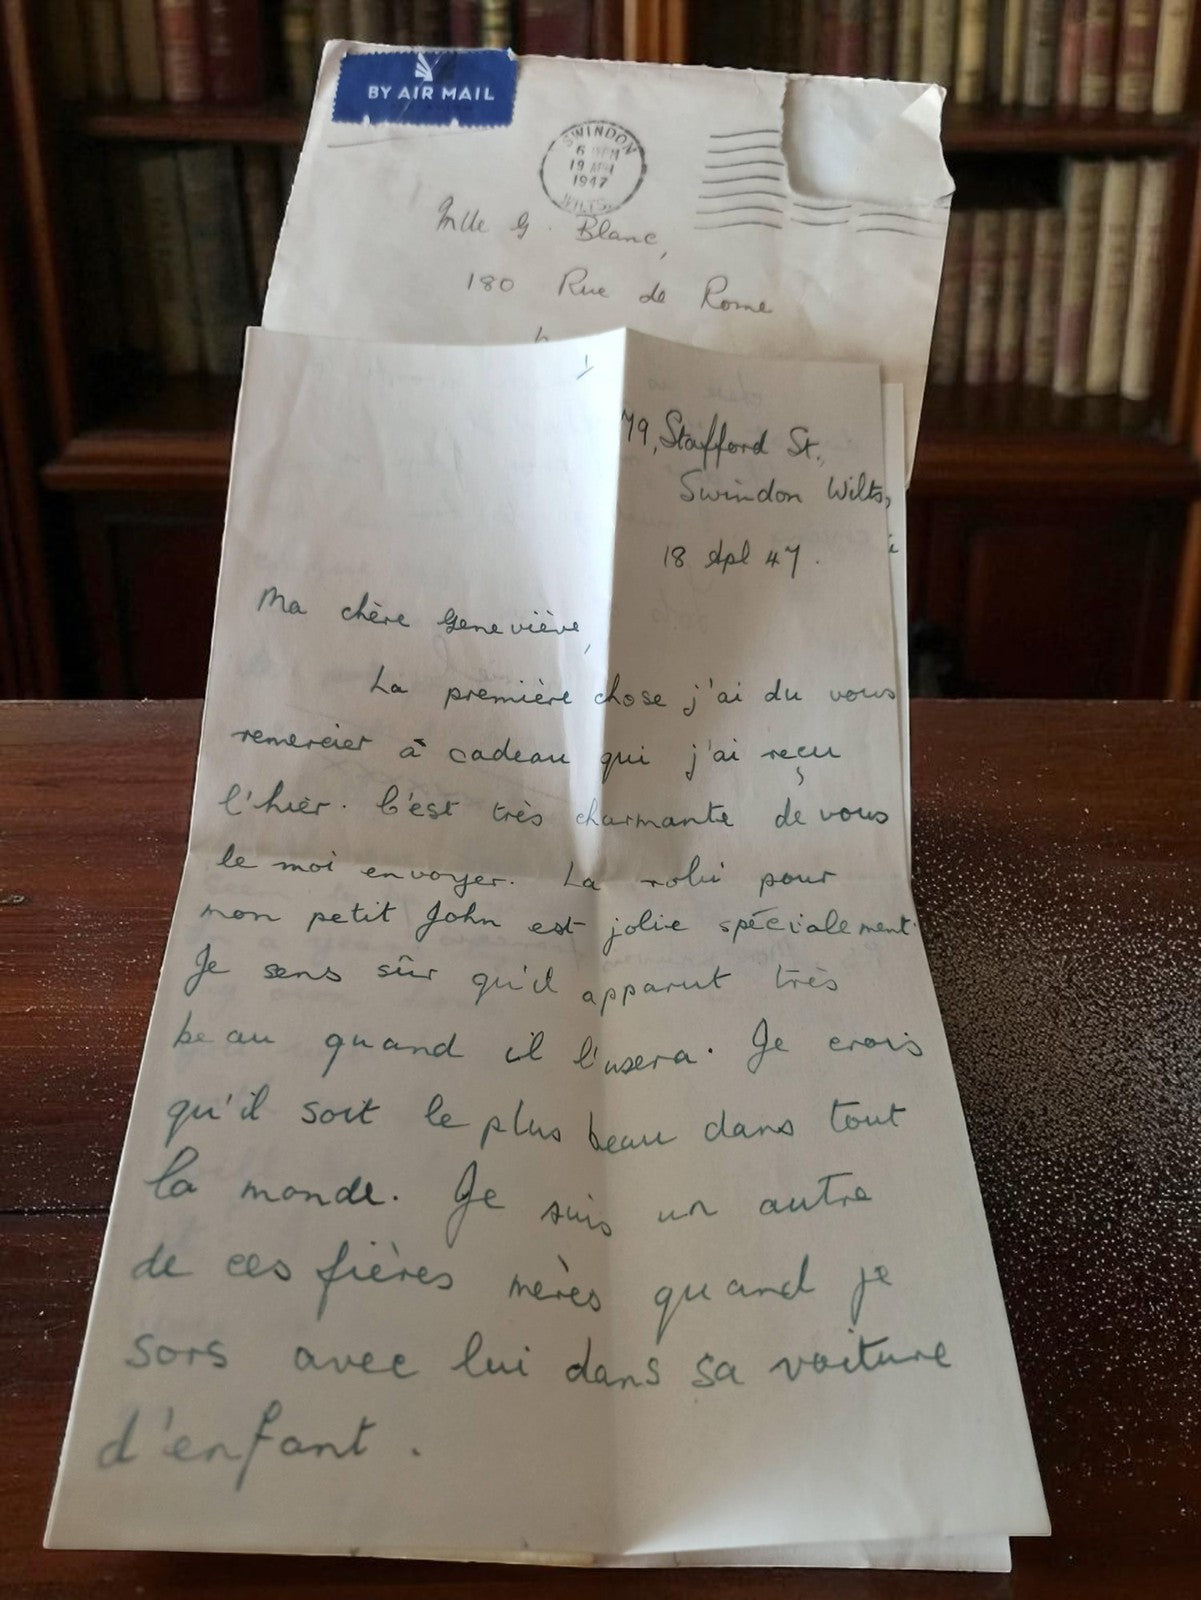 BY AIR MAIL
SWINDON
6
19 APR
1947
WILTS.
Mlle G. Blanc,
180 Rue de Rome
1
79, Stafford St.,
Swindon Wilts,
18 Apl 47.
Ma chère Geneviève,
La première chose j'ai du vous
remercier à cadeau qui j'ai reçu
l'hièr. C'est très charmante de vous
le moi envoyer. La robi pour
mon petit John est jolie spécialement
Je sens sûr qu'il apparut très
beau quand il l'usera. Je crois
qu'il soit le plus beau dans tout
la monde. Je suis un autre
de ces fières mères quand je
sors avec lui dans sa voiture
d'enfant.